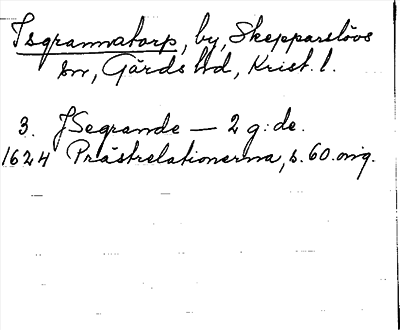 Isgrannatorp, by, Skepparslövs
sn, Gärds hd, Krist. l.
3. JSegrande — 2 g: de.
1624 Prästrelationerna, s. 60. orig.